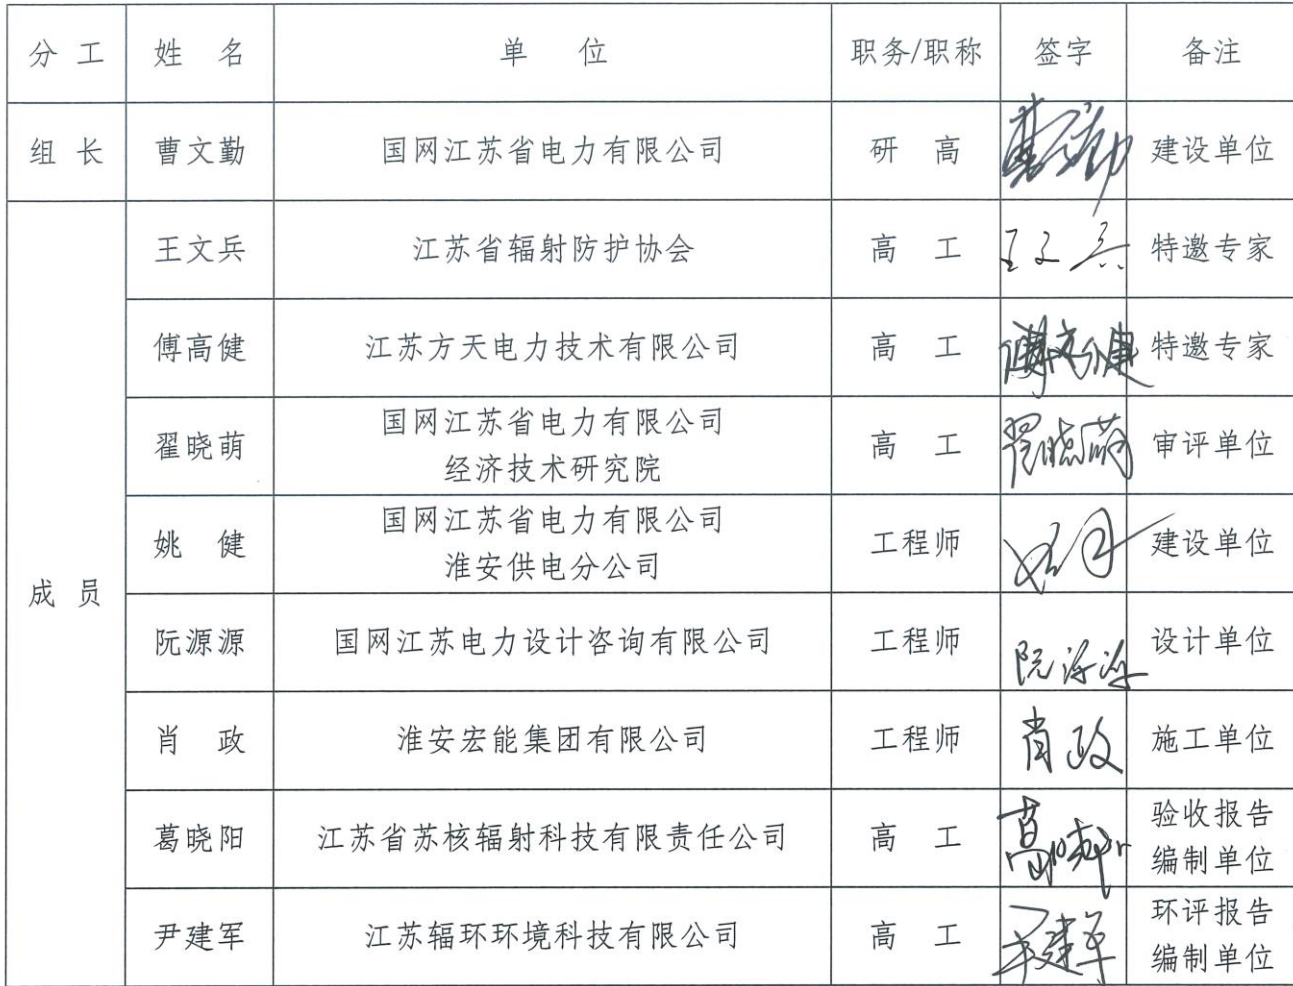 分 工 姓 名 单 位 职务/职称 签字 备注
组 长 曹文勤 国网江苏省电力有限公司 研 高 曹文勤 建设单位
王文兵 江苏省辐射防护协会 高 工 王文兵 特邀专家
傅高健 江苏方天电力技术有限公司 高 工 傅高健 特邀专家
翟晓萌 国网江苏省电力有限公司
经济技术研究院 高 工 翟晓萌 审评单位
成 员
姚 健 国网江苏省电力有限公司
淮安供电分公司 工程师 建设单位
阮源源 国网江苏电力设计咨询有限公司 工程师 阮源源 设计单位
肖 政 淮安宏能集团有限公司 工程师 肖政 施工单位
葛晓阳 江苏省苏核辐射科技有限责任公司 高 工 葛晓阳 验收报告
编制单位
尹建军 江苏辐环环境科技有限公司 高 工 尹建军 环评报告
编制单位